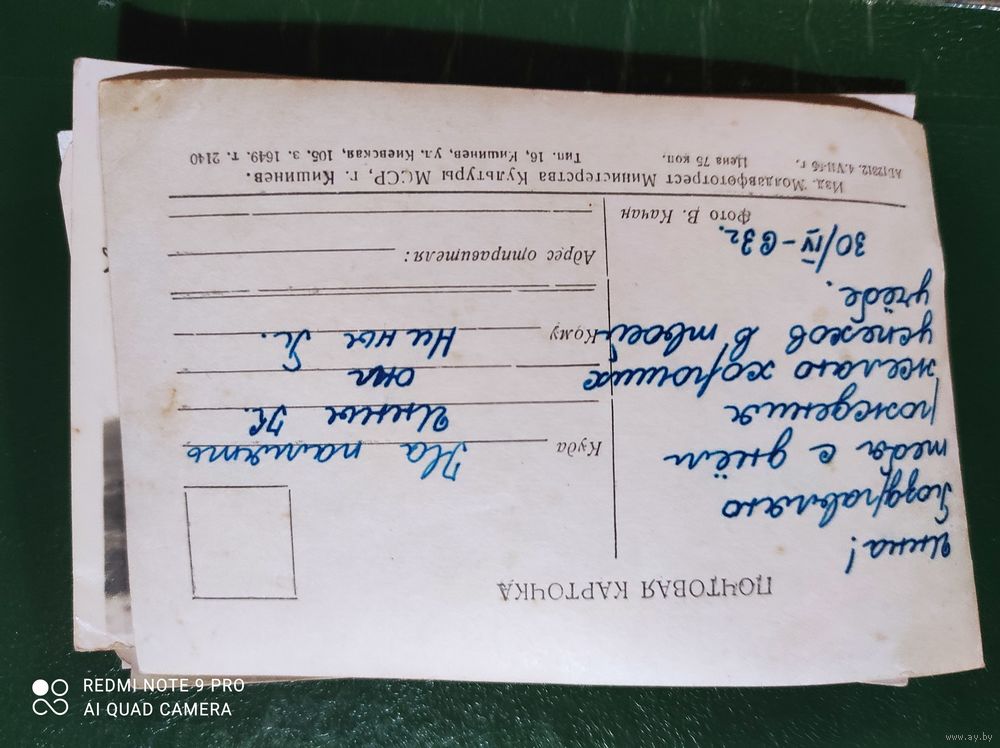 ПОЧТОВАЯ КАРТОЧКА
Инна!
Поздравляю
тебя с днём
рождения
желаю хороших
успехов в твоей
учёбе.
30/IV-63г.
Фото В. Качан
Куда
На память
Инны К.
от
Кому
Нины Л.
Адрес отправителя:
Изд. Молдавфототрест Министерства Культуры МССР, г. Кишинев.
АБ12312. 4.VII-56 г. Цена 75 коп. Тип. 16, Кишинев, ул. Киевская, 105. з. 1649. т. 2140
REDMI NOTE 9 PRO
AI QUAD CAMERA
www.ay.by